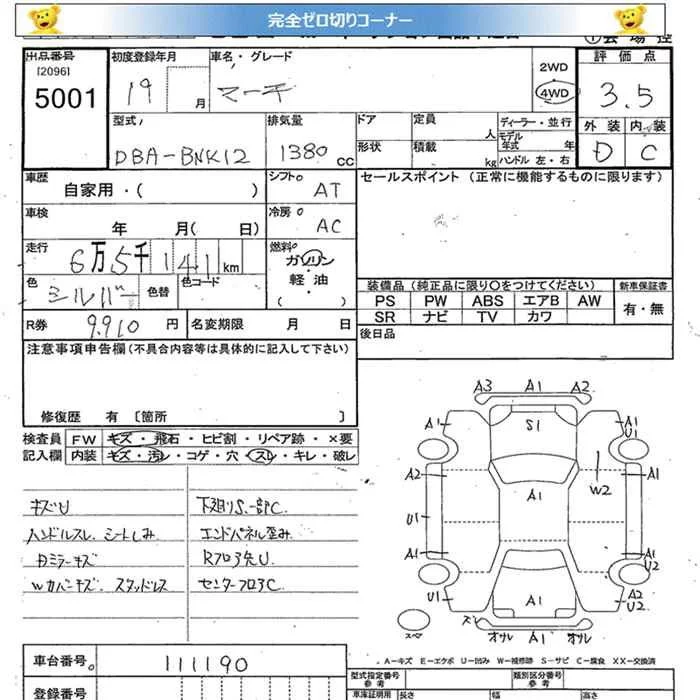 完全ゼロ切りコーナー
出品番号
[2096]
5001
初度登録年月
19
月
車名・グレード
マーチ
2WD
4WD
評価点
3.5
外装 内装
D C
型式
DBA-BNK12
排気量
1380 CC
ドア
形状
定員
人
積載
kg
ディーラー・並行
モデル年式 年
ハンドル 左・右
車歴
自家用・( )
シフト
AT
セールスポイント (正常に機能するものに限ります)
車検
年 月( 日)
冷房
AC
走行
6万5千141km
燃料
ガソリン
軽油
( )
色
シルバー
色替
色コード
装備品 (純正品に限り○をつけてください)
新車保証書
PS PW ABS エアB AW
SR ナビ TV カワ
有・無
R券
9.910 円
名変期限 月 日
後日品
注意事項申告欄 (不具合内容等は具体的に記入して下さい)
修復歴 有 〔箇所 〕
検査員 FW キズ・飛石・ヒビ割・リペア跡・×要
記入欄 内装 キズ・汚レ・コゲ・穴・スレ・キレ・破レ
キズU
ハンドルスレ、シートしみ
Dミラーキズ
Wカバーキズ、スタッドレス
下廻りS.一部C.
エンドパネル歪み
Rフロア先U
センターフロアC.
A3 A1 A2
A1
S1
A1
U1
A2
W2
A1
A1
U1
A1
A1
U2
U1
A1
A2
U2
スペ
ズレ
オサレ A1 オサレ
A-キズ E-エクボ U-凹み W-補修跡 S-サビ C-腐食 XX-交換済
車台番号
111190
登録番号
型式指定番号
参考
類別区分番号
参考
車庫証明用
長さ
幅
高さ